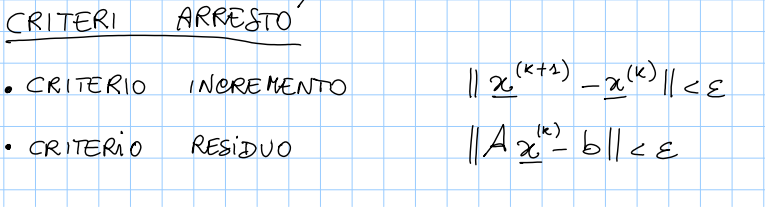 CRITERI ARRESTO'
• CRITERIO INCREMENTO ‖x^(k+1) - x^(k)‖ < ε
• CRITERIO RESIDUO ‖A x^(k) - b‖ < ε